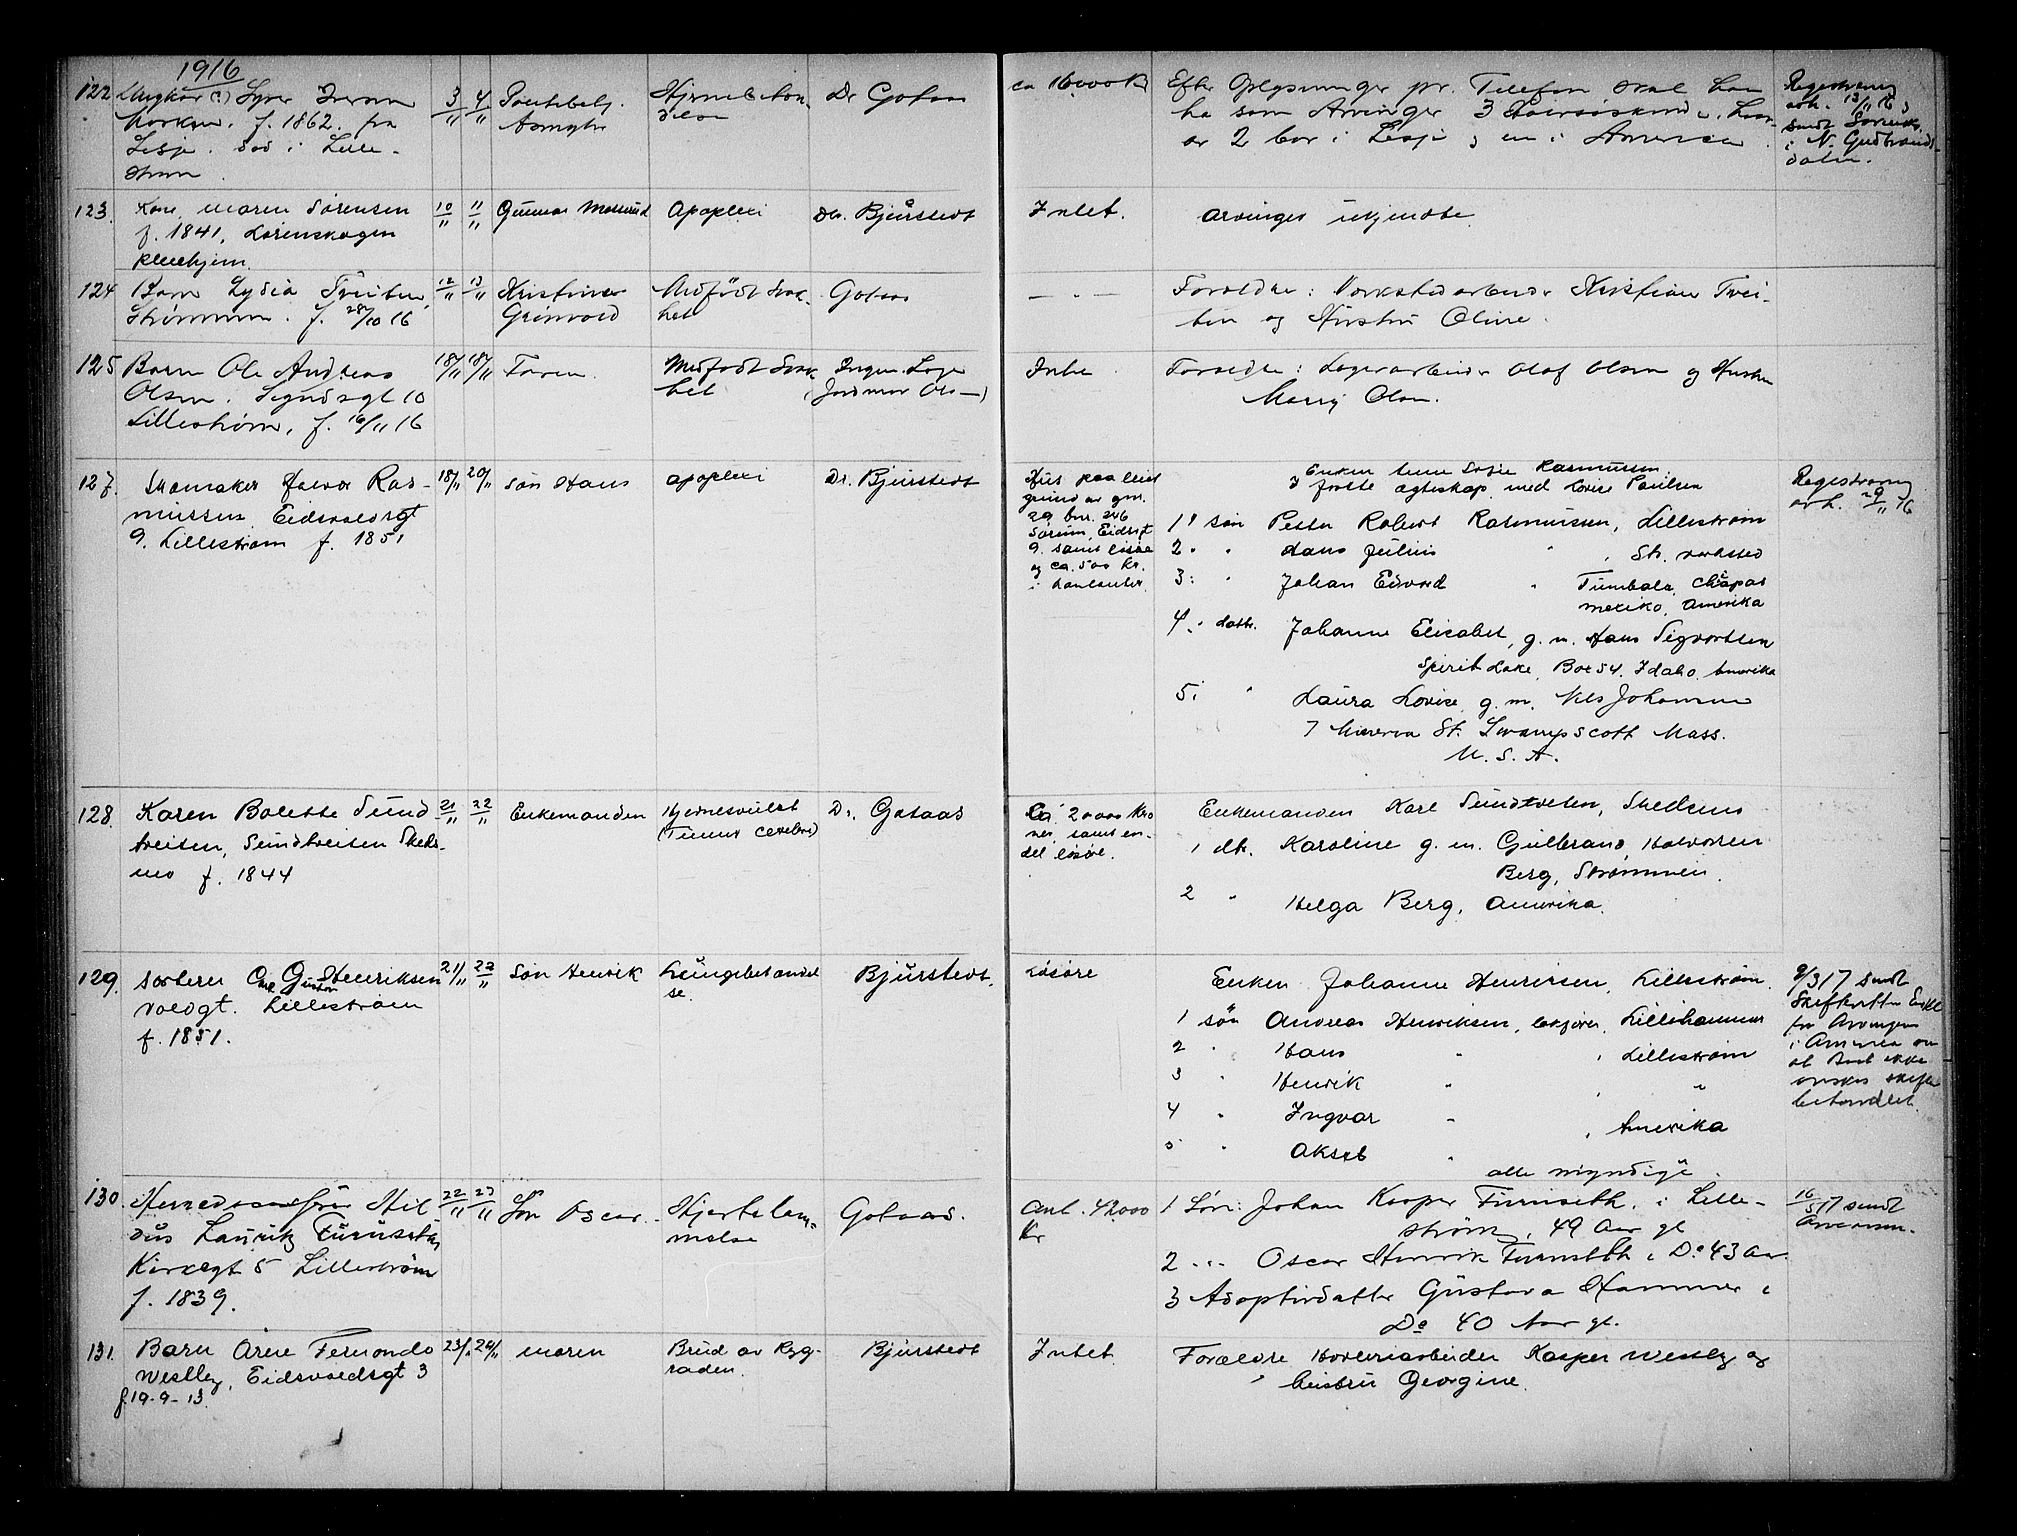 1916
122 Ungkar Syver Iverson
f. 1862. fra
Lesje. død i Lille-
strøm
3/11 4/11
Dr Gotaas
ca 16000 Kr
Efter Oplysninger pr. Telefon skal han
ha som Arvinger 3 hvor-
av 2 bor i Lesje og en i Amerika
Registrering
avh. 13/11 16 og
sendt Sorenskr.
i N. Gudbrands-
dalen.
123. Kone Maren Sørensen
f. 1841, Lørenskogen
pleiehjem.
10/11 11/11
Gunnar
Apoplexi
Dr. Bjurstedt
Intet.
Arvinger ukjendte
124 Barn Lydia Treiten,
Strømmen. f. 28/10 16
12/11 13/11
Kristine
Medfødt svak-
het
Gotaas
— " —
Foreldre: Verkstedarbeider Kristian Trei-
ten og Hustru Oline.
125 Barn Ole Andreas
Olsen. 10
Lillestrøm, f. 16/11 16
18/11 18/11
Faren.
Medfødt svak
het
Ingen Læge
(Jordmor Ols—)
Intet
Foreldre: Lagerarbeider Olaf Olsen og Hustru
Marry Olsen.
127. Skomaker Halvor Ras-
mussen Eidsvoldsgt
9. Lillestrøm f. 1851
18/11 20/11
søn Hans
apoplexi
Dr. Bjurstedt
Hus paa leiet
grund av gnr.
29 bnr. 26
Sørum, Eidsvgt
9. samt løsøre
og ca. 500 kr.
i kontanter.
Enken Anne Sofie Rasmussen.
I første ægteskap med Lovise Paulsen
1 søn Peter Robert Rasmussen, Lillestrøm
2. " Hans Julius " , Str. verksted
3: " Johan Edvard " Tumbala, Chiapas
Mexiko, Amerika
4. datt. Johanne Elisabet, g. m. Hans Sigvartsen
Spirit Lake, Box 54, Idaho, Amerika
5. " Laura Lovise g. m. Nils Johansen
7 Minerva St. Swampscott Mass.
U. S. A.
Registrering
avh. 29/11 16
128. Karen Bolette Sund-
treiten, Sundtreiten Skeds-
mo f. 1844
21/11 22/11
Enkemanden
Hjernesvulst
(Tumor cerebri)
Dr. Gotaas
Ca. 20000 Kro
ner, samt en-
del løsøre.
Enkemanden Karl Sundtreten, Skedsmo
1 dtr. Karoline g. m. Gulbrand Halvorsen
Berg, Strømmen.
2 " Helga Berg, Amerika.
129. sorterer Carl Gustav Henriksen
Voldgt. Lillestrøm
f. 1851.
21/11 22/11
Søn Henrik
Lungebetændel
se.
Bjurstedt.
Løsøre
Enken Johanne Henriksen, Lillestrøm.
1 søn Andreas Henriksen, Lillehammer
2 " Hans " , Lillestrøm
3 " Henrik " , "
4 " Ingvar "
5 " Aksel " , Amerika
alle myndige
9/3 17 sendt
for Arvingen
i Amerika om
at Boet ikke
ønskes skifte
behandlet.
130. Hil
dus Lauritz Furuseth,
Kirkegt 5 Lillestrøm
f. 1839.
22/11 23/11
Søn Oscar.
Hjertelam-
melse
Gotaas.
Ant. 42000
Kr
1 Søn: Johan Kasper Furuseth. i Lille-
strøm, 49 Aar gl
2 " . Oscar Henrik Furuseth i Do 43 Aar.
3 Adoptivdatter Gustava Hammer i
Do 40 Aar gl.
16/5 17 sendt
131. Barn Arne Fernando
Westby, Eidsvoldsgt 3
f. 19-9-13.
23/11 24/11
moren
Brud av Ryg-
raden.
Bjurstedt
Intet.
Forældre Høvleriarbeider Kasper Westby og
hustru Georgine.